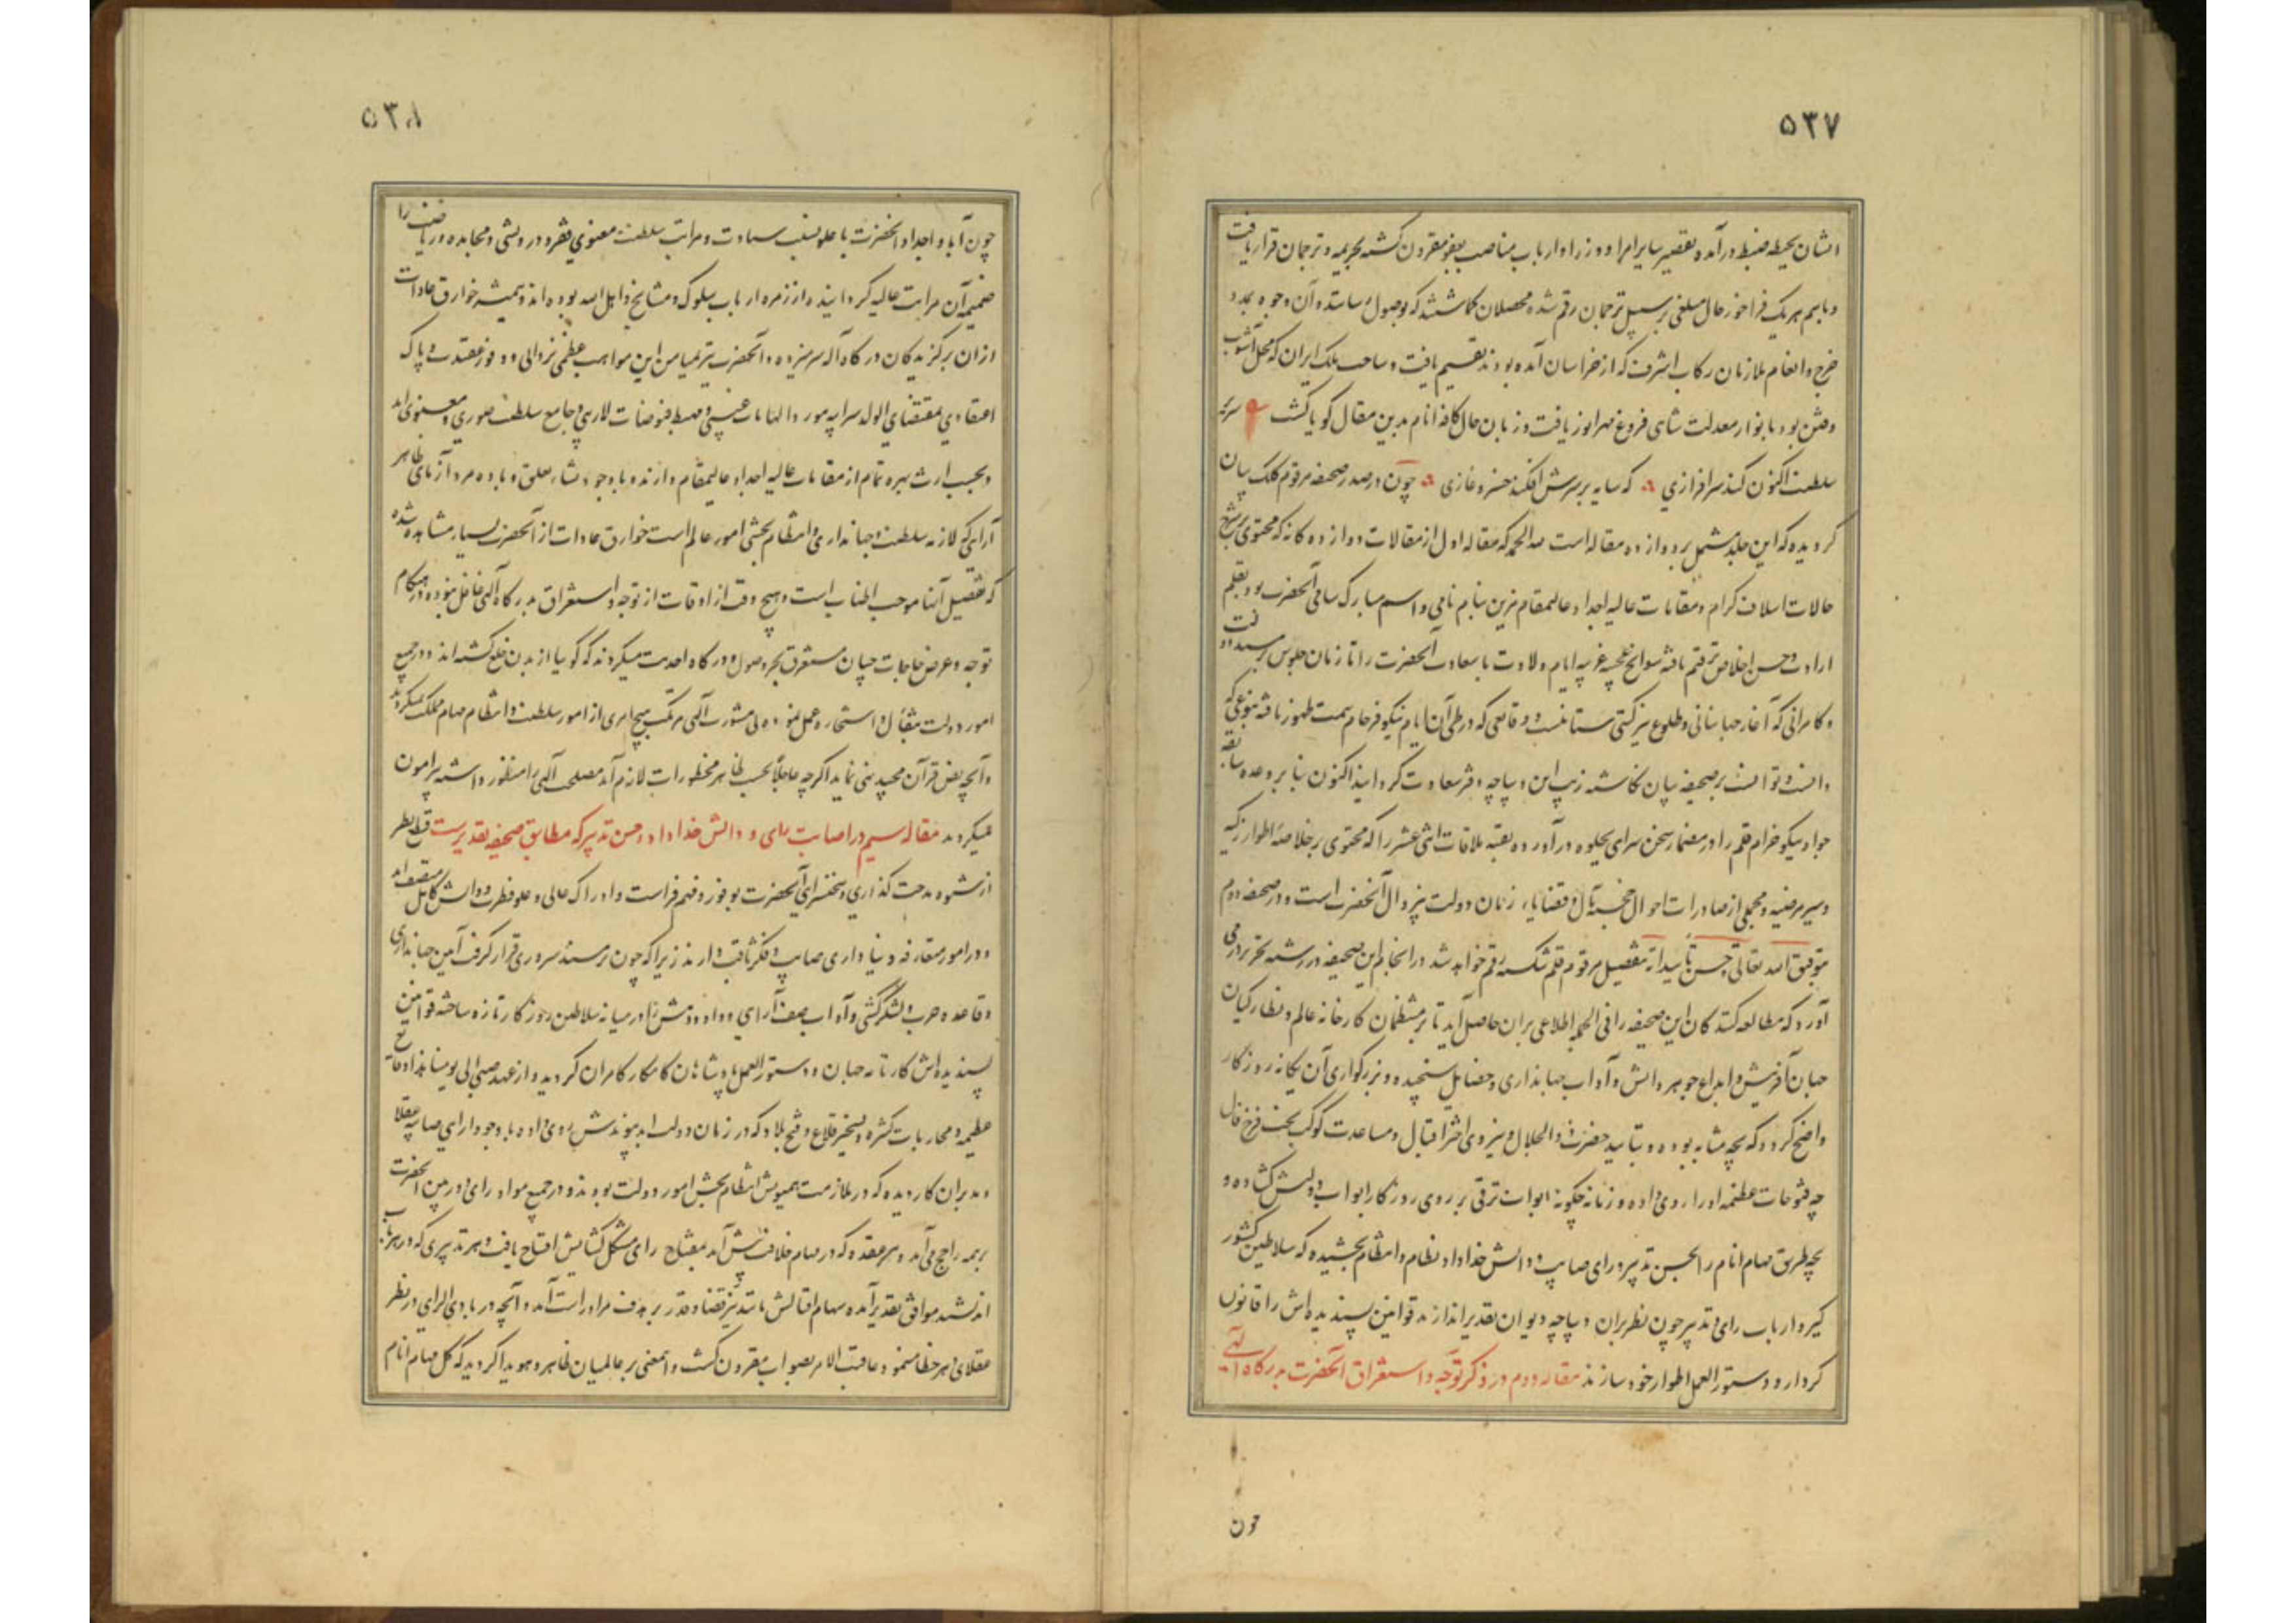 ۵۳۷
ایشان بحیطه ضبط درآمده تقصیر سایر امرا و وزرا و ارباب مناصب بعفو مقرون گشته بجریمه و ترجمان قرار یافت
و باسم هر یک فراخور حال مبلغی بر سبیل ترجمان رقم شده محصلان گماشتند که بوصول رسانند و آن وجوه بمدد
خرج و انعام ملازمان رکاب اشرف که از خراسان آمده بودند تقسیم یافت و ساحت ملک ایران که محل آشوب
و فتن بود بانوار معدلت شاهی فروغ مهر انور یافت و زبان حال کافه انام بدین مقال گویا گشت سریر
سلطنت اکنون کند سرافرازی که سایه بر سرش افکند خسرو غازی چون در صدر صحیفه مرقوم کلک بیان
گردیده که این جلد مشتمل بر دوازده مقاله است لله الحمد که مقاله اول از مقالات دوازده گانه که محتوی بر شرح
حالات اسلاف کرام و مقامات عالیه اجداد عالیمقام مزین بنام نامی و اسم مبارک سامی آنحضرت بود بقلم
ارادت و حسن اخلاص ترقیم یافته سوانح عجیبه غریبه ایام ولادت با سعادت آنحضرت را تا زمان جلوس بر مسند دولت
و کامرانی که آغاز جهانبانی و طلوع نیر گیتی ستانیست و وقایعی که در طی آن ایام نیکو فرجام سمت ظهور یافته بنوعی که
دانست و توانست بر صحیفه بیان نگاشته زیب این دیباچه دفتر سعادت گردانید اکنون بنابر وعده سابقه
جواد نیکو خرام قلم را در مضمار سخن سرای بجلوه درآورده بقیه مقالات اثنی عشر را که محتوی بر خلاصه اطوار زکیه
و سیر مرضیه و مجملی از صادرات احوال خجسته مآل و قضایاء زمان دولت بیزوال آنحضرت است و در صحیفه دوم
بتوفیق الله تعالی و حسن تأییداته بتفصیل مرقوم قلم شکسته رقم خواهد شد در انجام این صحیفه در رشته تحریر درمی
آورد که مطالعه کنندگان این صحیفه را فی الجمله اطلاعی بران حاصل آید تا بر منتظمان کارخانه عالم و نظارگیان
جهان آفرینش و ابداع جوهر دانش و آداب جهانداری و خصایل سنجیده و بزرگواری آن یگانه روزگار
واضح گردد که بچه مثابه بوده و بتایید حضرت ذوالجلال و نیروی اختر اقبال و مساعدت کوکب بخت فرخ فال
چه فتوحات عظیمه او را روی داده و زمانه چگونه ابواب ترقی بر روی روزگار ابواب دولتش گشاده و
بچه طریق مهام انام را بحسن تدبیر و رای صایب و دانش خداداد نظام و انتظام بخشیده که سلاطین کشور
گیر و ارباب رای و تدبیر چون نظر بران دیباچه دیوان تقدیر اندازند قوانین پسندیده اش را قانون
کردار و دستور العمل اطوار خود سازند مقاله دوم در ذکر توجه و استغراق آنحضرت بدرگاه آلهی
چون
۵۳۸
چون آبا و اجداد آنحضرت با علو نسب سیادت و مراتب سلطنت معنوی فقر و درویشی و مجاهده و ریاضت را
ضمیمه آن مراتب عالیه گردانیده از زمره ارباب سلوک و مشایخ و اهل الله بوده اند و همیشه خوارق عادات
ازان برگزیدگان درگاه آله سر میزده و آنحضرت نیز بمیامن این مواهب عظمی یزدانی و وفور عقیدت و پاک
اعتقادی بمقتضای الولد سر ابیه مورد الهامات غیبی و مهبط فیوضات لاریبی و جامع سلطنت صوری و معنوی اند
و بحسب ارث بهره تمام از مقامات عالیه اجداد عالیمقام دارند و با وجود مشاء تعلق و باده مرد آزمای ظاهر
آرایی که لازمه سلطنت و جهانداری و انتظام بخشی امور عالم است خوارق عادات از آنحضرت بسیار مشاهده شده
که تفصیل آنها موجب اطناب است و هیچ وقت از اوقات از توجه و استغراق بدرگاه آلهی غافل نبوده در هنگام
توجه و عرض حاجات چنان مستغرق بحر وصول و درگاه احدیت میگردند که گویا از بدن خلع گشته اند و در جمیع
امور دولت بتفأل و استخاره عمل نموده بی مشورت آلهی مرتکب هیچ امری از امور سلطنت و انتظام مهام مملکت نمیگردند
و آنچه نص قرآن مجید نهی نماید اگرچه عاجلاً بحسب ظاهر محظورات لازم آید مصلحت آلهی را منظور داشته پیرامون
نمیگردند مقاله سیم در اصابت رای و دانش خداداد و حسن تدبیر که مطابق صحیفه تقدیرست قطع نظر
از شیوه مدحت گذاری و سخنسرای آنحضرت بوفور و فهم فراست و ادراک عالی و علو فطرت و دانش کامل متصف اند
و در امور متعارفه دنیا داری صایب و فکر ثاقب دارند زیرا که چون بر مسند سروری قرار گرفت آیین جهانداری
و قاعده حرب و لشکرکشی و آداب صف آرای و داد و دهش را در میانه سلاطین روزگار تازه ساخته قوانین
پسندیده اش کارنامه جهان و دستور العمل پادشاهان کامکار کامران گردید و از عهد صبی الی یومنا هذا وقایع
عظیمه و محاربات کثیره و تسخیر قلاع و فتح بلاد که در زمان دولت ابد پیوندش روی داده با وجود آرای صایبه عقلا
و مدبران کاردیده که در ملازمت همیونش انتظام بخش امور دولت بودند و در جمیع مواد رای دوربین آنحضرت
بر همه راجح می آمد و هر عقده که در مهام خلافت پیش آمد بمفتاح رای مشکل گشایش افتتاح یافت و هر تدبیری که در هر باب
اندیشید موافق تقدیر آمده سهام اقبالش باتدبیر قضا و قدر بر هدف مراد راست آمد و آنچه در بادی الرای در نظر
عقلای دهر خطا مینمود عاقبت الامر بصواب مقرون گشت و این معنی بر عالمیان ظاهر و هویدا گردید که کل مهام انام